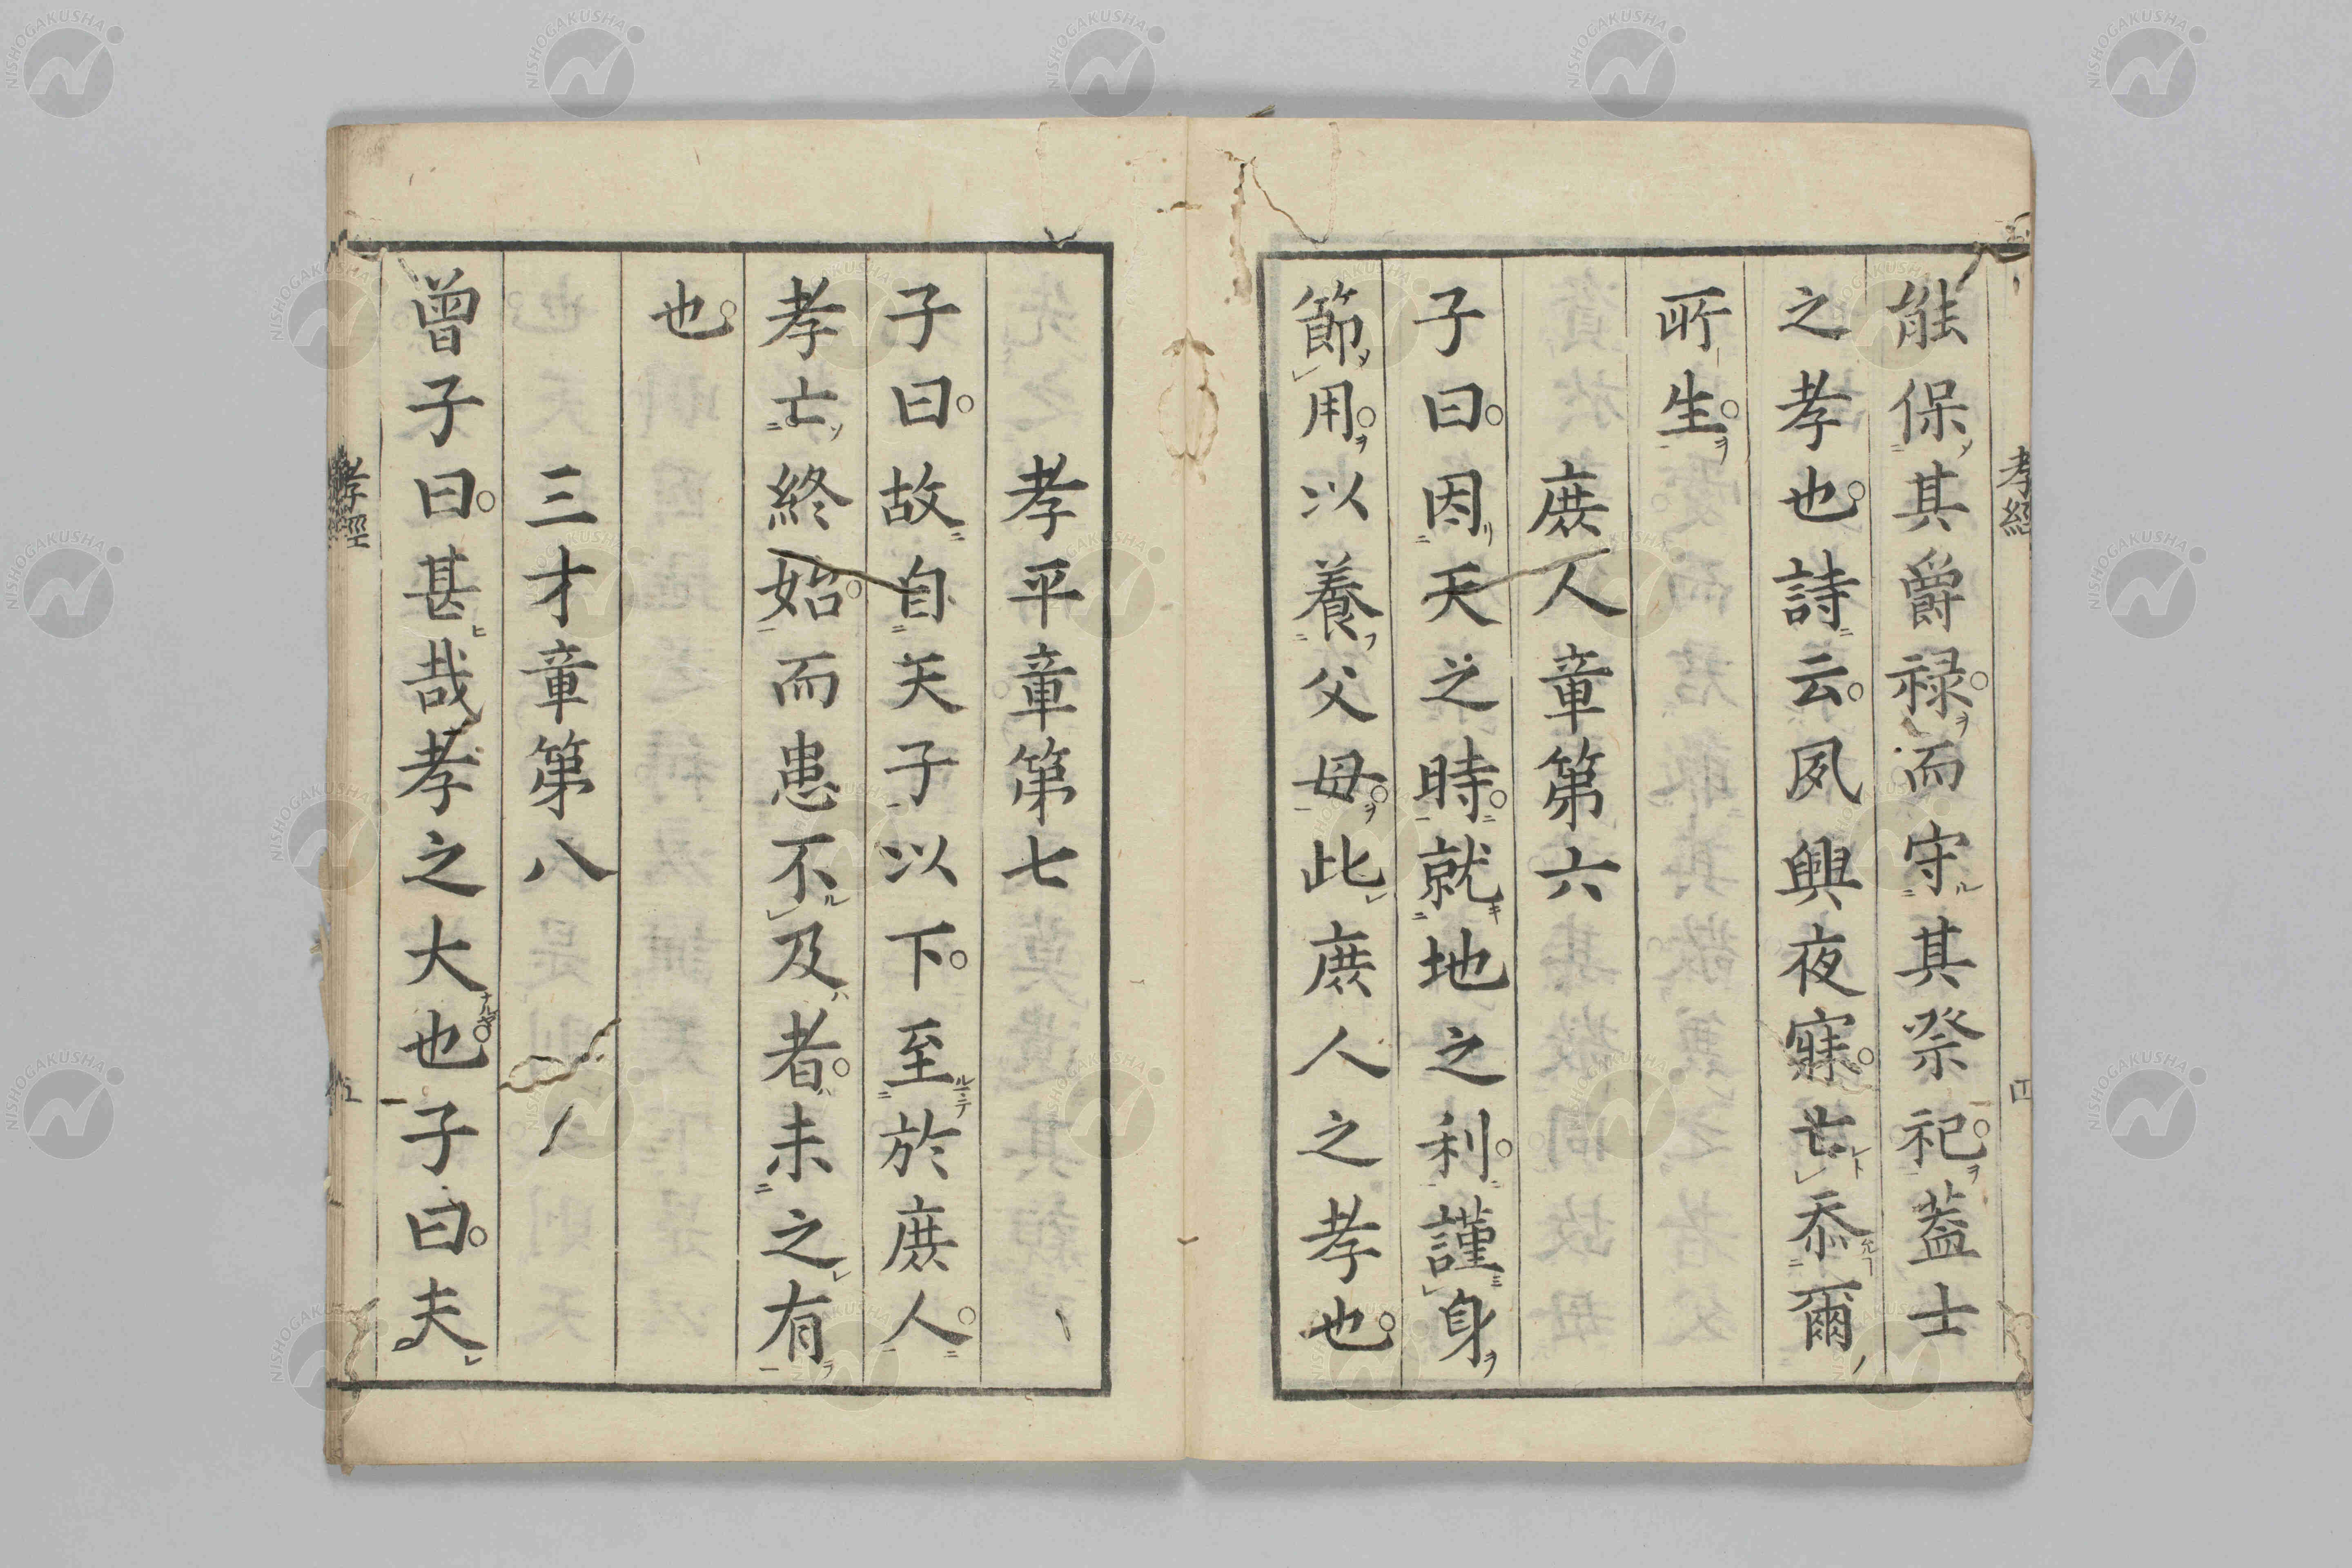 能保其爵禄。而守其祭祀。蓋士
之孝也。詩云。夙興夜寐。亡忝爾
所生。
庶人章第六
子曰。因天之時。就地之利。謹身
節用。以養父母。此庶人之孝也。
孝平章第七
子曰。故自天子以下。至於庶人。
孝亡終始。而患不及者。未之有
也。
三才章第八
曾子曰。甚哉孝之大也。子曰。夫
孝經